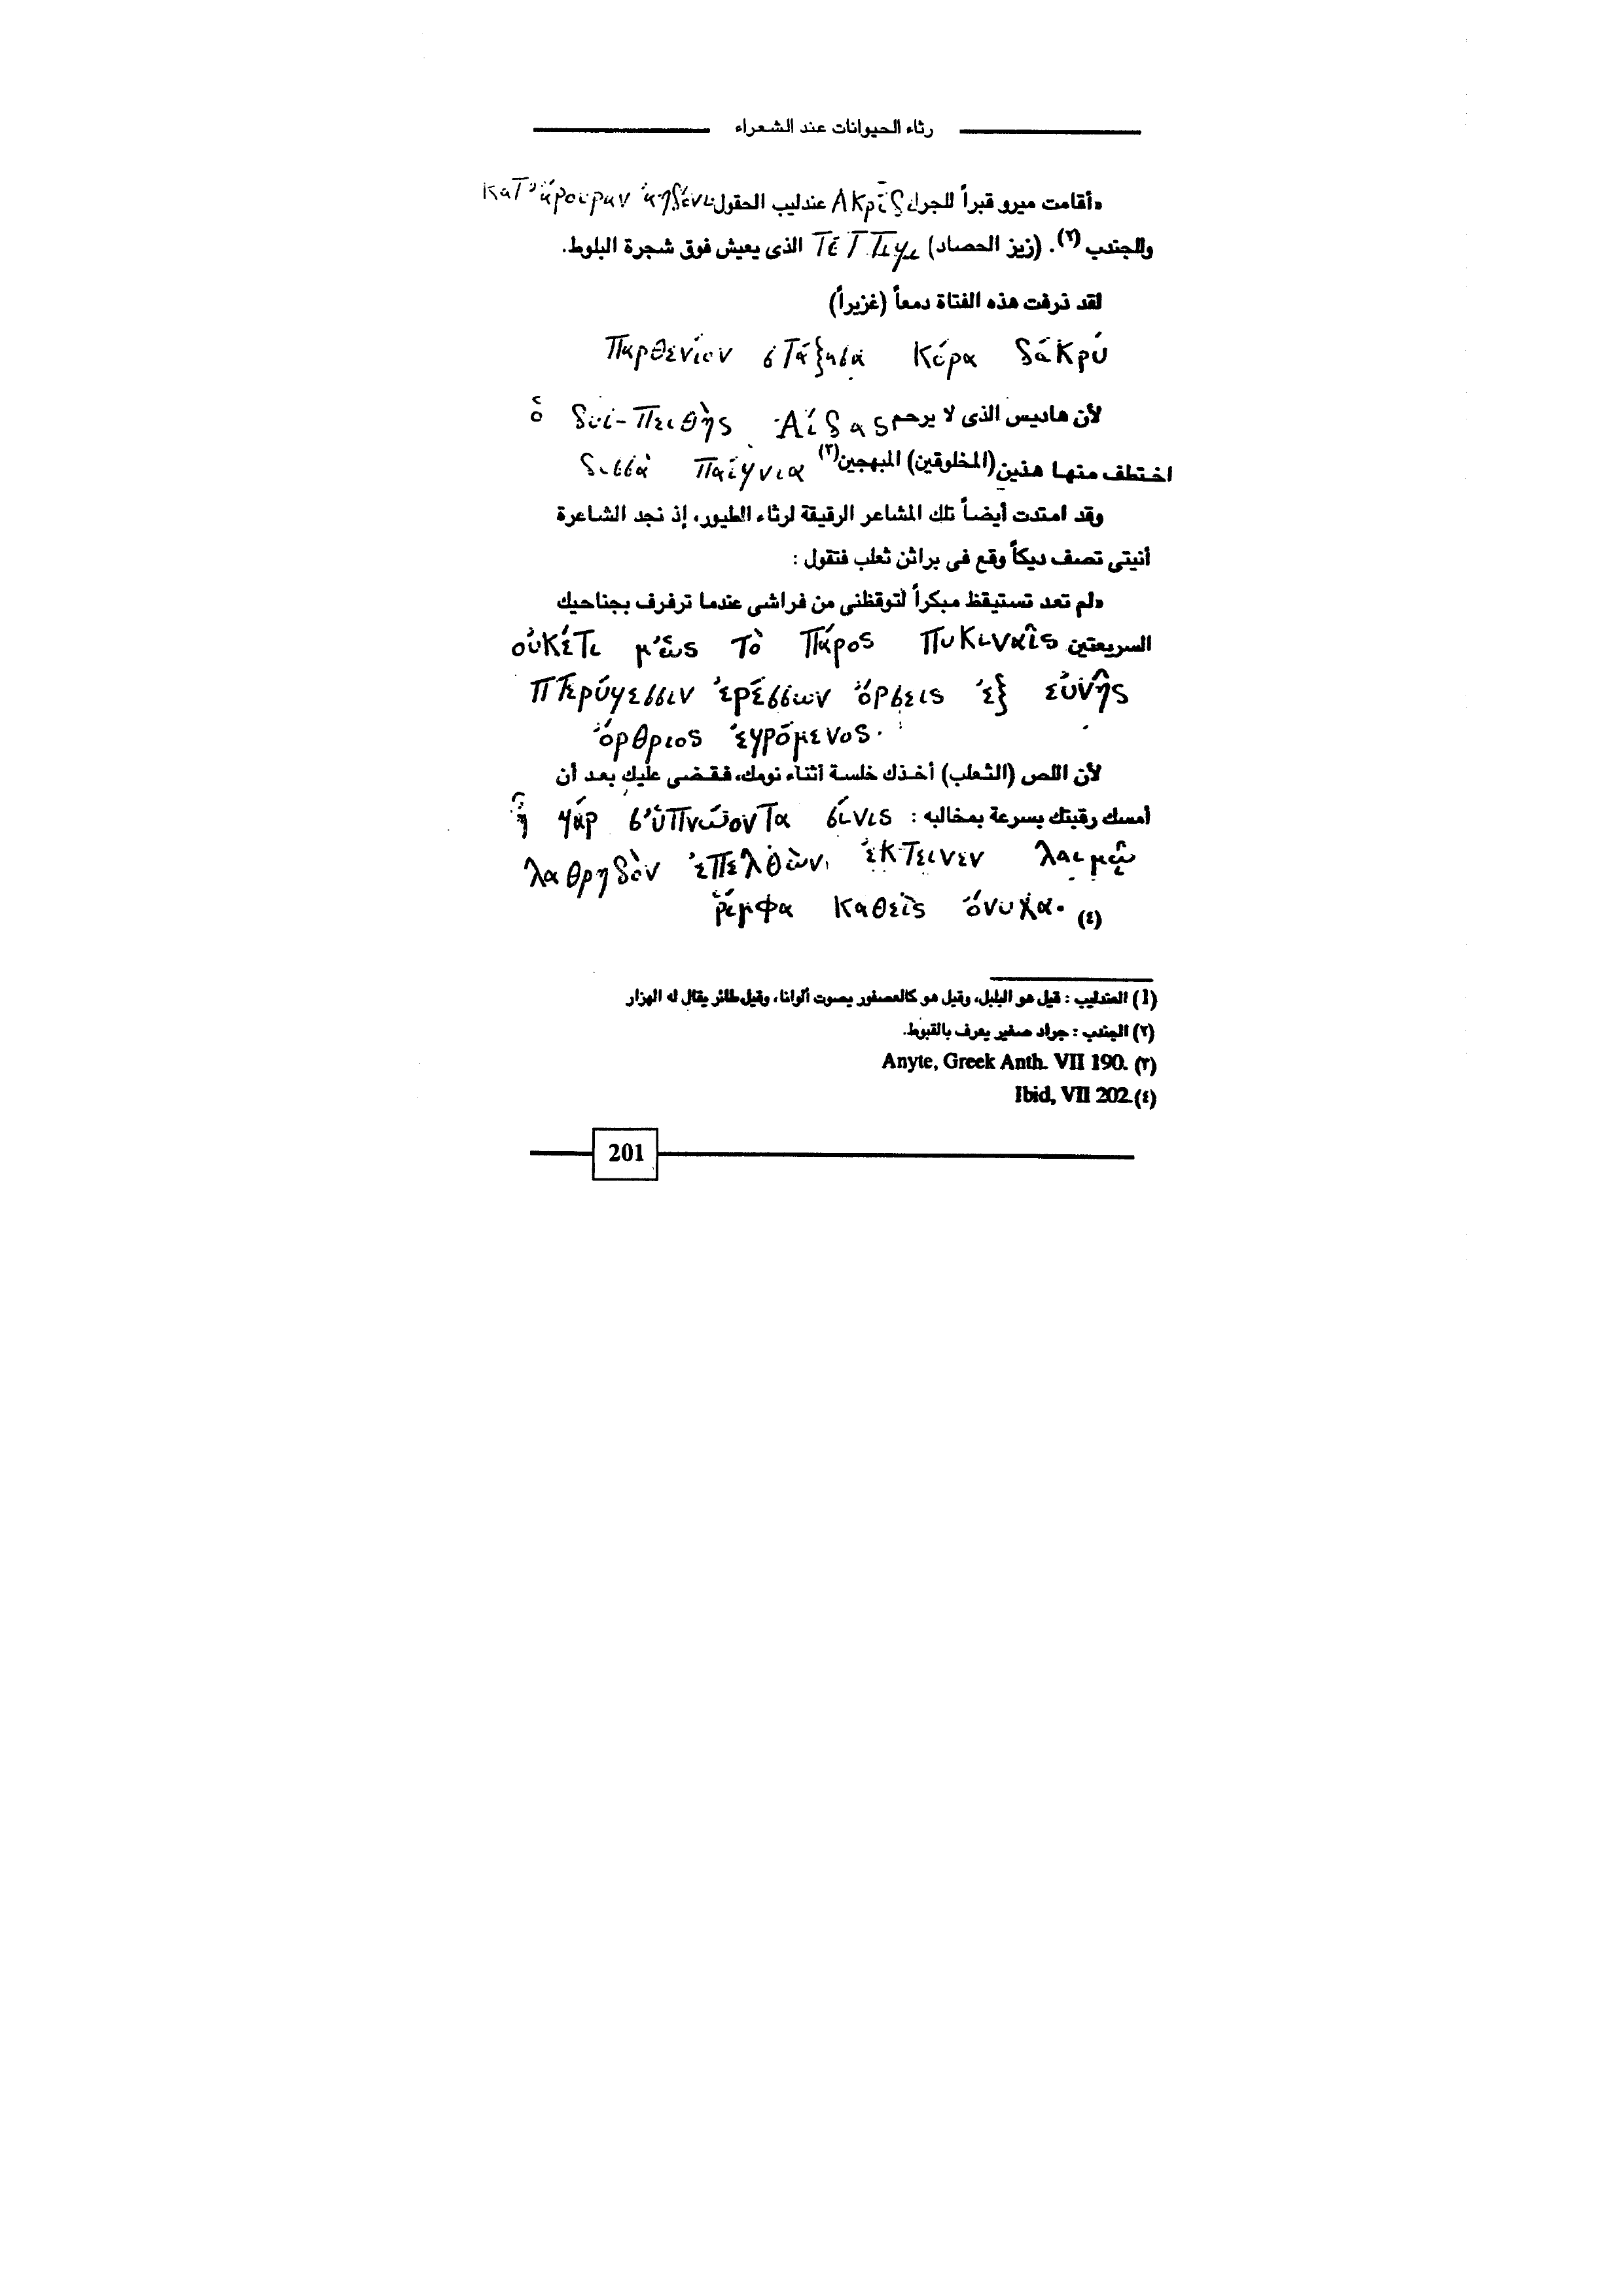 رثاء الحيوانات عند الشعراء
«أقامت ميرو قبراً للجراد Ακρίδι عندليب الحقول κατ' ἄρουραν ἀηδόνι
وللجندب (٢). (زيز الحصاد) τέττιγι الذى يعيش فوق شجرة البلوط.
لقد ذرفت هذه الفتاة دمعاً (غزيراً)
παρθένιον στάξασα κόρα δάκρυ
لأن هاديس الذى لا يرحم Ἀίδας δυσ-πειθὴς ὁ
اختطف منها هذين (المخلوقين) المبهجين (٣) δισσὰ παίγνια
وقد امتدت أيضاً تلك المشاعر الرقيقة لرثاء الطيور، إذ نجد الشاعرة
أنيتى تصف ديكاً وقع فى براثن ثعلب فتقول :
«لم تعد تستيقظ مبكراً لتوقظنى من فراشى عندما ترفرف بجناحيك
السريعتين οὐκέτι μ'ὡς τὸ πάρος πυκιναῖς
πτερύγεσσιν ἐρέσσων ὄρσεις ἐξ εὐνῆς
ὄρθριος ἐγρόμενος.
لأن اللص (الثعلب) أخذك خلسة أثناء نومك، فقضى عليك بعد أن
أمسك رقبتك بسرعة بمخالبه : ἦ γάρ σ'ὑπνώοντα σίνις
λαθρηδὸν ἐπελθὼν ἔκτεινεν λαιμῷ
ῥίμφα καθεὶς ὄνυχα. (٤)
(1) العندليب : قيل هو البلبل، وقيل هو كالعصفور يصوت ألوانا، وقيل طائر يقال له الهزار
(٢) الجندب : جراد صغير يعرف بالقبوط.
(٣) Anyte, Greek Anth. VII 190.
(٤) Ibid, VII 202.
201